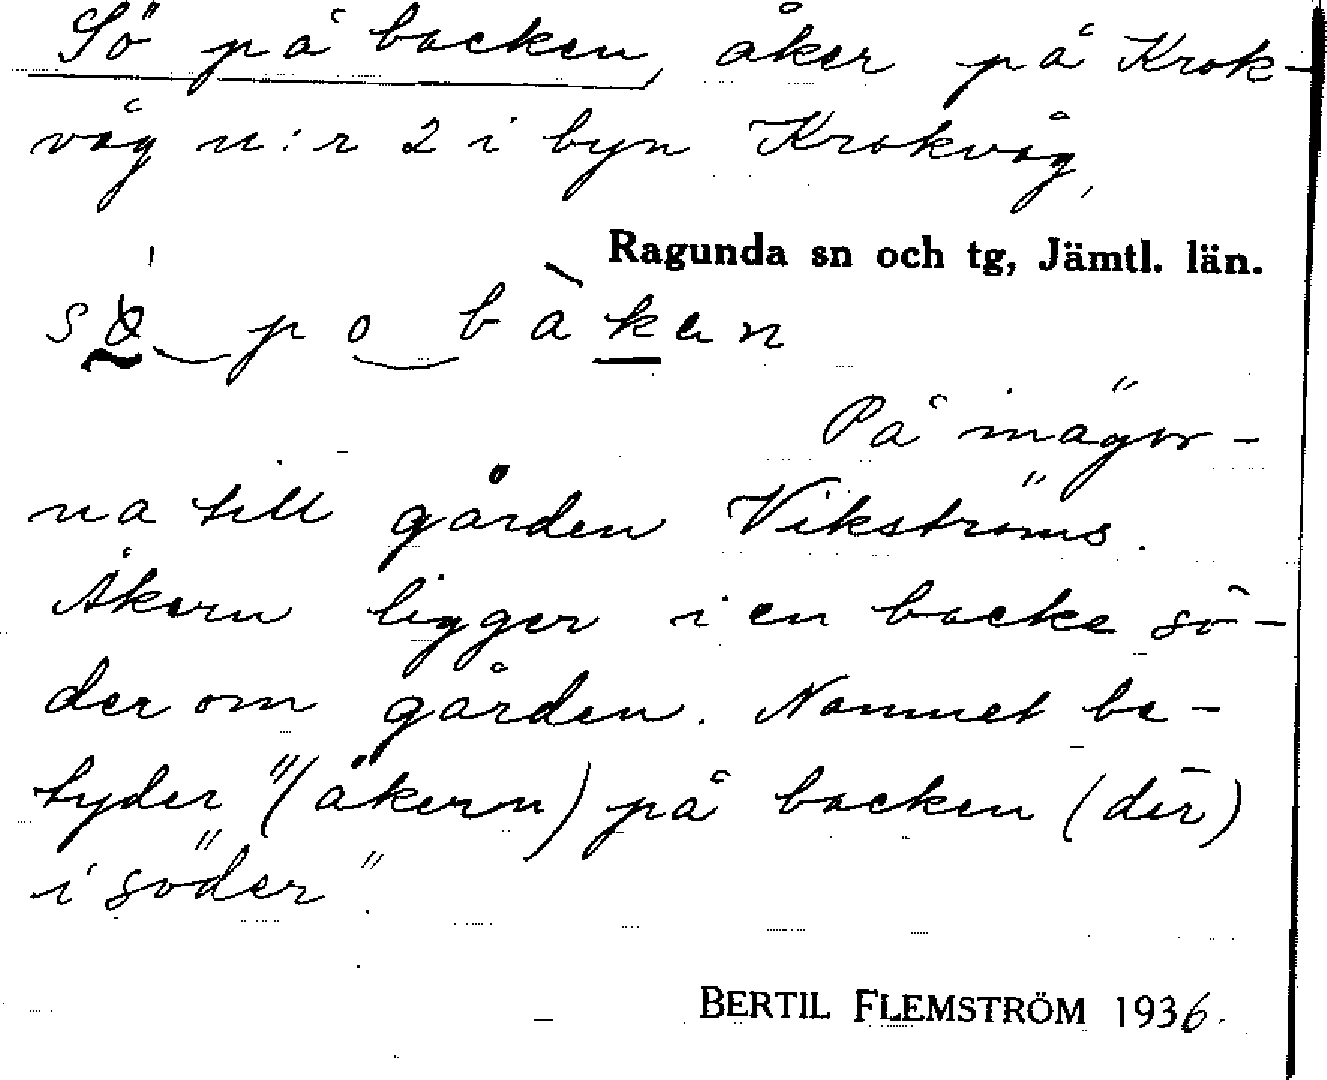 Sö på backen, åker på Krok-
våg n:r 2 i byn Krokvåg,
Ragunda sn och tg, Jämtl. län.
På inägor-
na till gården Vikströms.
Åkern ligger i en backe sö-
der om gården. Namnet be-
tyder "(åkern) på backen (där)
i söder".
BERTIL FLEMSTRÖM 1936.